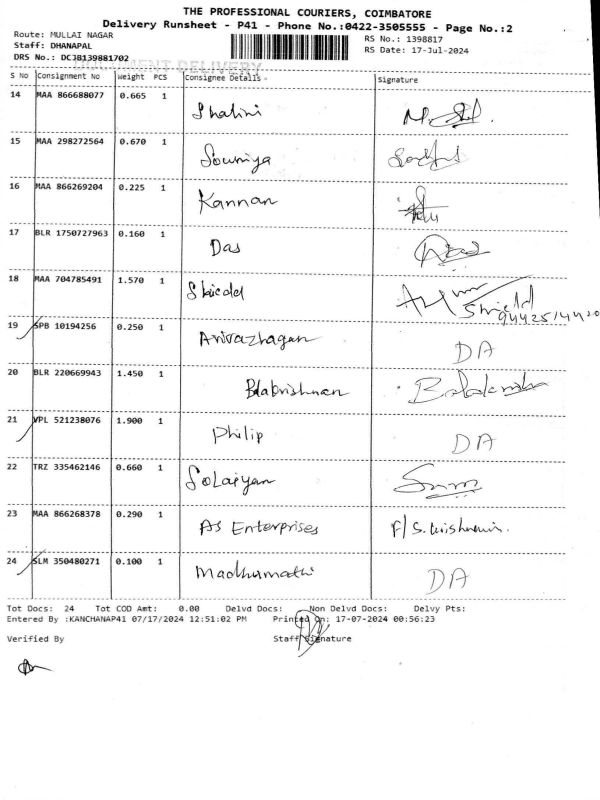 THE PROFESSIONAL COURIERS, COIMBATORE
Delivery Runsheet - P41 - Phone No.:0422-3505555 - Page No.:2
Route: MULLAI NAGAR
RS No.: 1398817
Staff: DHANAPAL
RS Date: 17-Jul-2024
DRS No.: DCJB139881702
DOCUMENT DELIVERY
S No Consignment No Weight PCS Consignee Details Signature
14 MAA 866688077 0.665 1 Shalini
15 MAA 298272564 0.670 1 Sowmiya
16 MAA 866269204 0.225 1 Kannan
17 BLR 1750727963 0.160 1 Das
18 MAA 704785491 1.570 1 Shield
19 SPB 10194256 0.250 1 Arivazhagan DA
20 BLR 220669943 1.450 1 Balakrishnan
21 VPL 521238076 1.900 1 Philip DA
22 TRZ 335462146 0.660 1 Solaiyan
23 MAA 866268378 0.290 1 AS Enterprises
24 SLM 350480271 0.100 1 Madhumathi DA
Tot Docs: 24 Tot COD Amt: 0.00 Delvd Docs: Non Delvd Docs: Delvy Pts:
Entered By :KANCHANAP41 07/17/2024 12:51:02 PM Printed On: 17-07-2024 00:56:23
Verified By Staff Signature